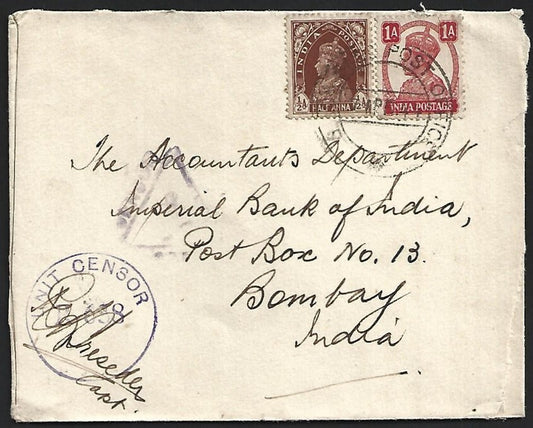 INDIA POSTAGE
½A HALF ANNA ½A
1A 1A
INDIA POSTAGE
POST OFFICE
The Accountants Department
Imperial Bank of India,
Post Box No. 13.
Bombay
India
UNIT CENSOR
Capt.